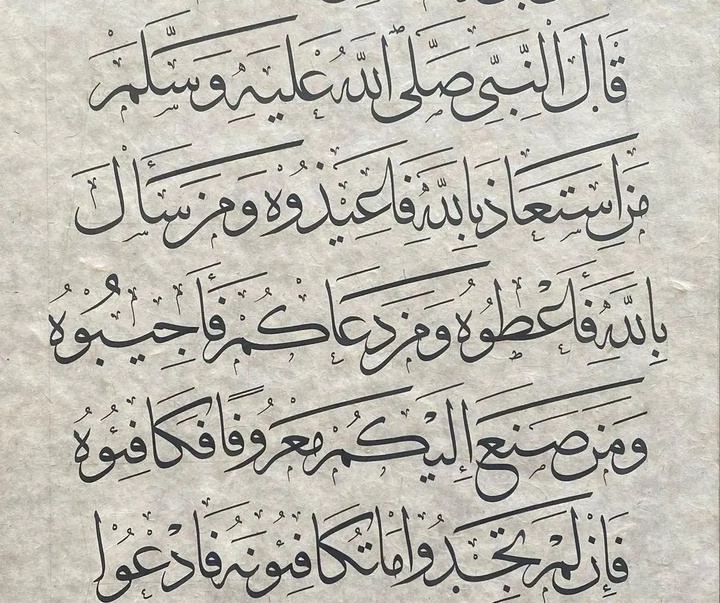 قَالَ النَّبِيُّ صَلَّى اللَّهُ عَلَيْهِ وَسَلَّمَ
مَنِ اسْتَعَاذَ بِاللَّهِ فَأَعِيذُوهُ وَمَنْ سَأَلَ
بِاللَّهِ فَأَعْطُوهُ وَمَنْ دَعَاكُمْ فَأَجِيبُوهُ
وَمَنْ صَنَعَ إِلَيْكُمْ مَعْرُوفًا فَكَافِئُوهُ
فَإِنْ لَمْ تَجِدُوا مَا تُكَافِئُونَهُ فَادْعُوا